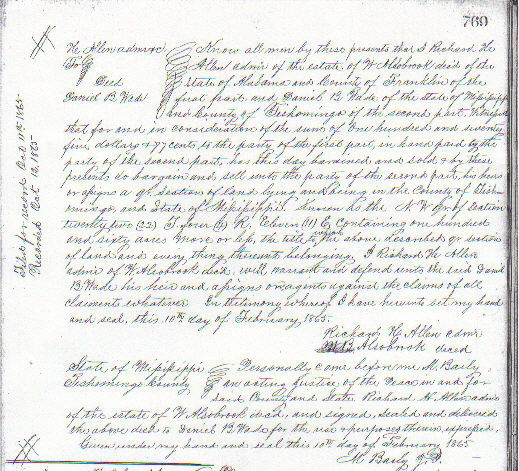 769
H Allen admr &c Know all men by these presents that I Richard H
To Allen admr of the estate of W Alsobrook decd of the
Deed State of Alabama and County of Franklin of the
Daniel B. Wade first part and Daniel B. Wade of the state of Missippi
and County of Tishomingo of the second part, Witnesseth
that for and in consideration of the sum of One hundred and seventy
five dollars & 77 cents to the party of the first part, in hand paid by the
party of the second part, has this day bargained and sold & by these
present do bargain and sell unto the party of the second part, his heirs
or assigns a qr. section of land lying and being in the County of Tisho
mingo, and State of Missippi. Known as the N. W qr of section
twenty two (22) T. four (4) R. Eleven (11) E Containing one hundred
and sixty acres more or less, the title to the above described qr section
of land and every thing thereunto belonging, I Richard H Allen
admr of W Alsobrook decd, will warrant and defend unto the said Daniel
B Wade his heirs and assigns or agents against the claims of all
claiments whatever In testimony whereof I have hereunto set my hand
and seal, this 10th day of February, 1865.
Richard H. Allen admr
Alsobrook decd
State of Missippi Personally came before me M. Basly,
Tishomingo County an acting Justice of the Peace in and for
said County and State Richard H. Allen admr
of the estate of W Alsobrook decd, and signed, sealed and delivered
the above deed to Daniel B. Wade for the use & purposes therein expressed.
Given under my hand and seal this 10th day of February 1865
M. Basly J. P.
Filed for record Oct 11th 1865
Recorded Oct 12, 1865